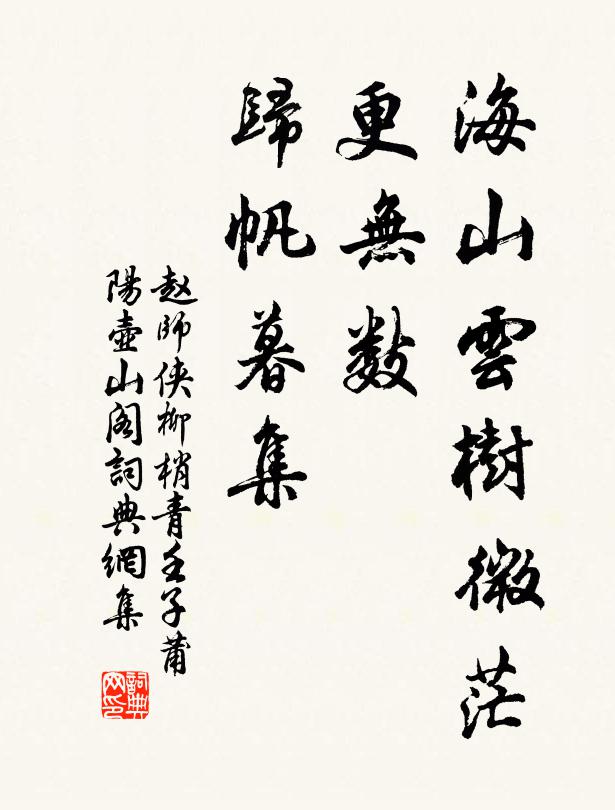 海山雲樹微茫
更無數
歸帆暮集
赵師侠柳梢青壬子莆
陽壺山阁詞典網集
詞典
网印